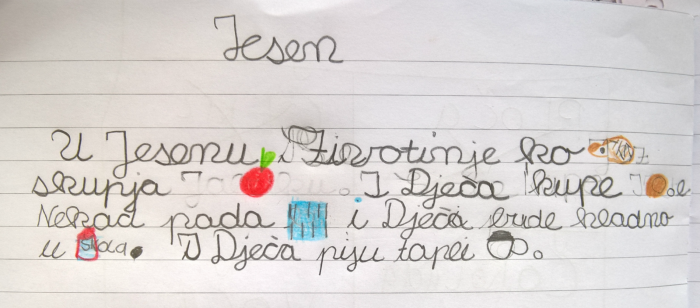 Jesen
U Jesenu I Životinje ko jež
skuplja. I Dječa kupe
Nekad pada i Dječi bude hladno
u škola. I Dječa piju topli